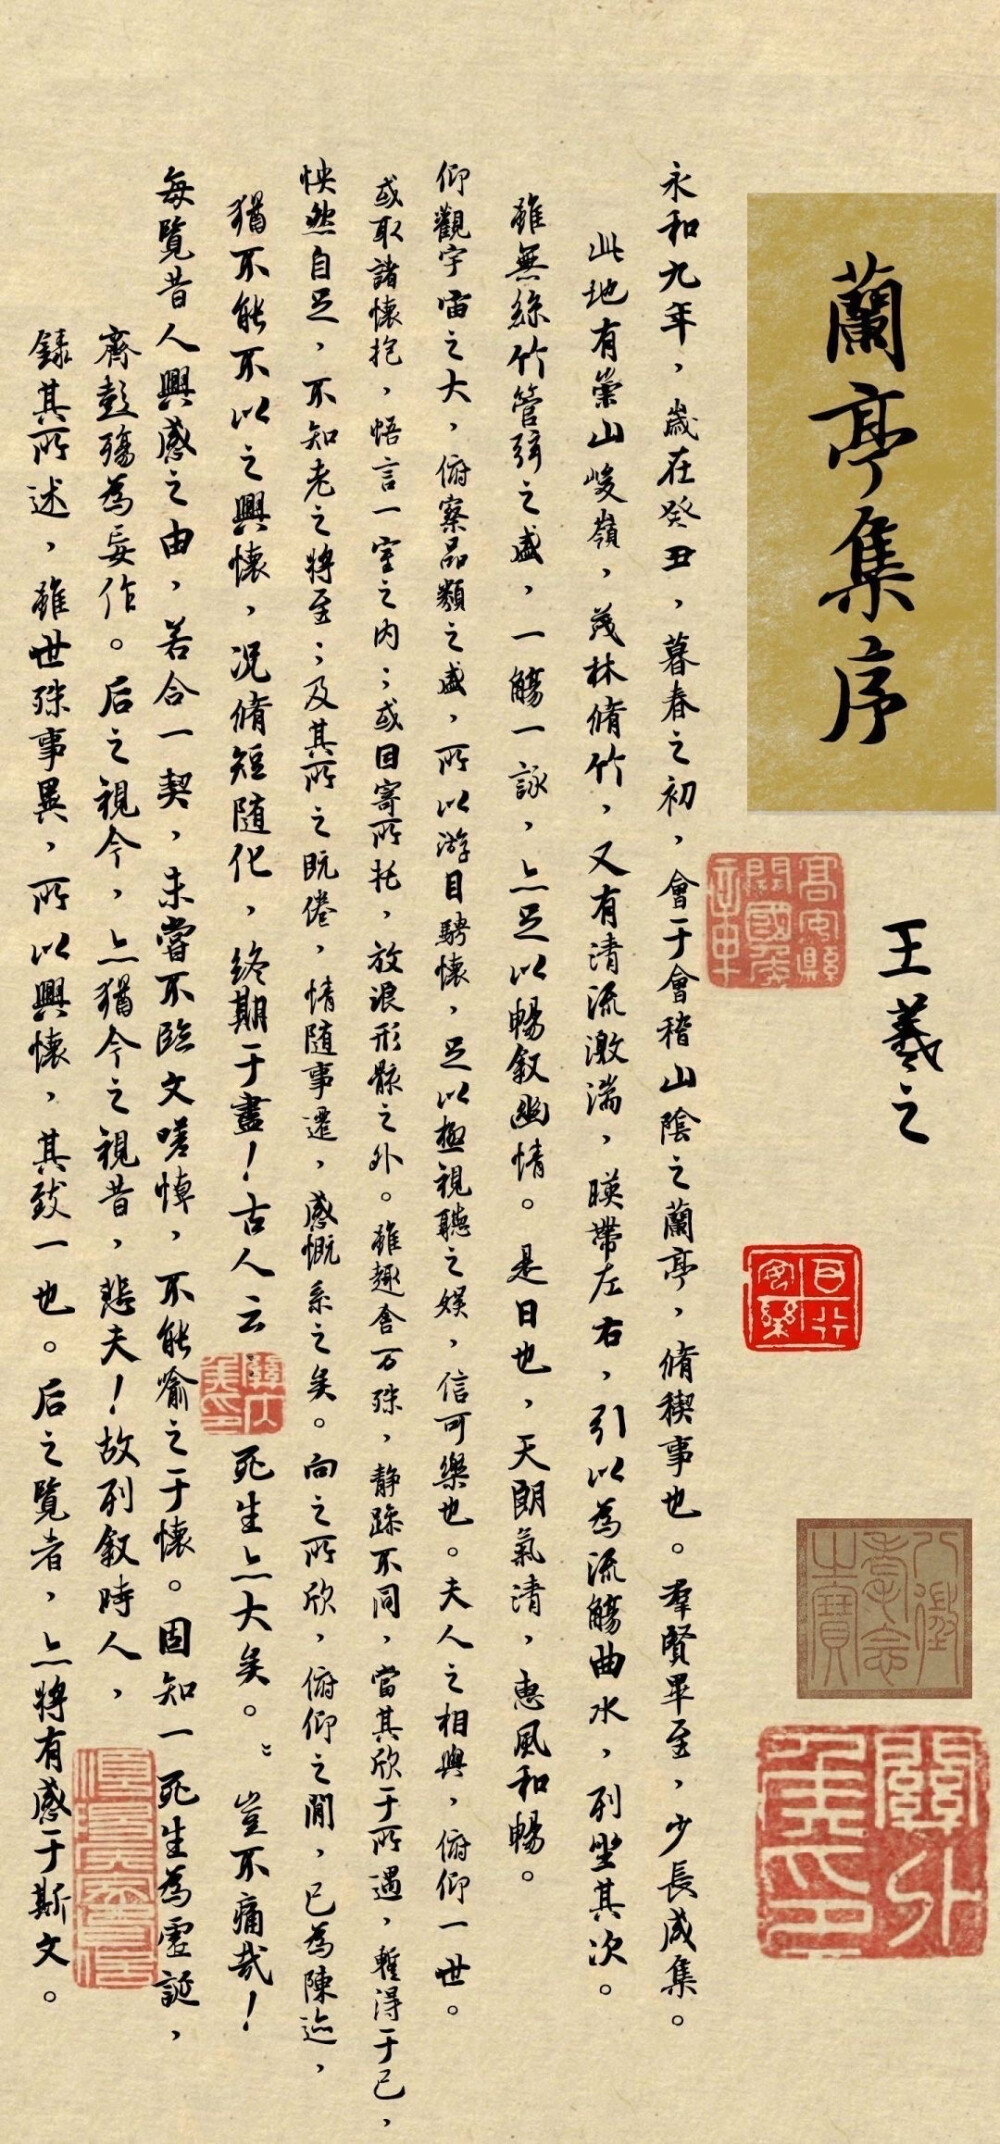 蘭亭集序
王羲之
永和九年，歲在癸丑，暮春之初，會于會稽山陰之蘭亭，脩稧事也。羣賢畢至，少長咸集。
此地有崇山峻嶺，茂林脩竹，又有清流激湍，暎帶左右，引以為流觴曲水，列坐其次。
雖無絲竹管弦之盛，一觴一詠，亦足以暢敘幽情。是日也，天朗氣清，惠風和暢。
仰觀宇宙之大，俯察品類之盛，所以游目騁懷，足以極視聽之娛，信可樂也。夫人之相與，俯仰一世。
或取諸懷抱，悟言一室之内；或因寄所托，放浪形骸之外。雖趣舍万殊，静躁不同，當其欣于所遇，暫得于己，
怏然自足，不知老之將至；及其所之既倦，情随事遷，感慨系之矣。向之所欣，俯仰之間，已為陳迹，
猶不能不以之興懷，况脩短随化，終期于盡！古人云 死生亦大矣。 豈不痛哉！
每覽昔人興感之由，若合一契，未嘗不臨文嗟悼，不能喻之于懷。固知一死生為虛誕，
齊彭殤為妄作。后之視今，亦猶今之視昔，悲夫！故列叙時人，
録其所述，雖世殊事異，所以興懷，其致一也。后之覽者，亦將有感于斯文。